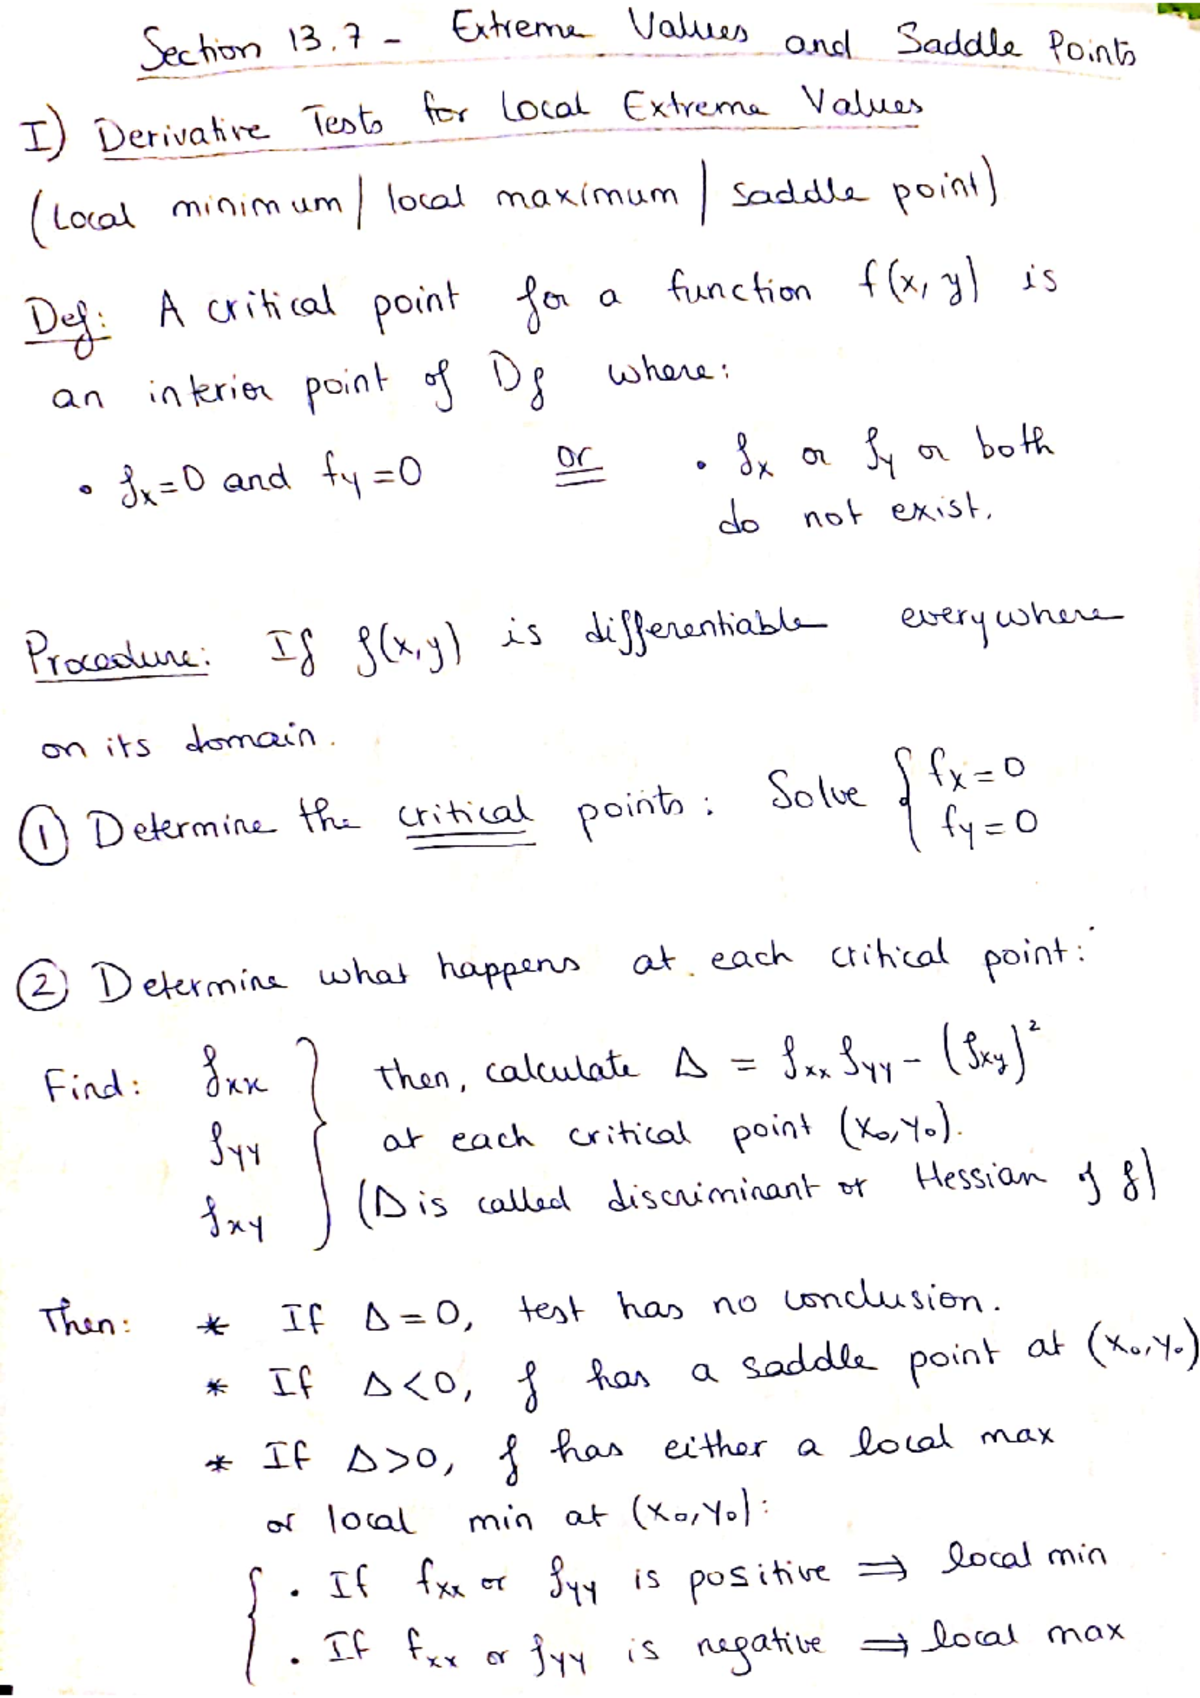 Section 13.7 - Extreme Values and Saddle Points
I) Derivative Tests for Local Extreme Values
(Local minimum / local maximum / saddle point)
Def: A critical point for a function f(x, y) is
an interior point of Df where:
• fx=0 and fy=0 or • fx or fy or both
do not exist.
Procedure: If f(x,y) is differentiable everywhere
on its domain.
① Determine the critical points: Solve { fx=0
fy=0
② Determine what happens at each critical point:
Find: fxx } then, calculate Δ = fxx fyy - (fxy)²
fyy at each critical point (x₀,y₀).
fxy (Δ is called discriminant or Hessian of f)
Then: * If Δ=0, test has no conclusion.
* If Δ<0, f has a saddle point at (x₀,y₀)
* If Δ>0, f has either a local max
or local min at (x₀,y₀):
{ • If fxx or fyy is positive ⇒ local min
• If fxx or fyy is negative ⇒ local max